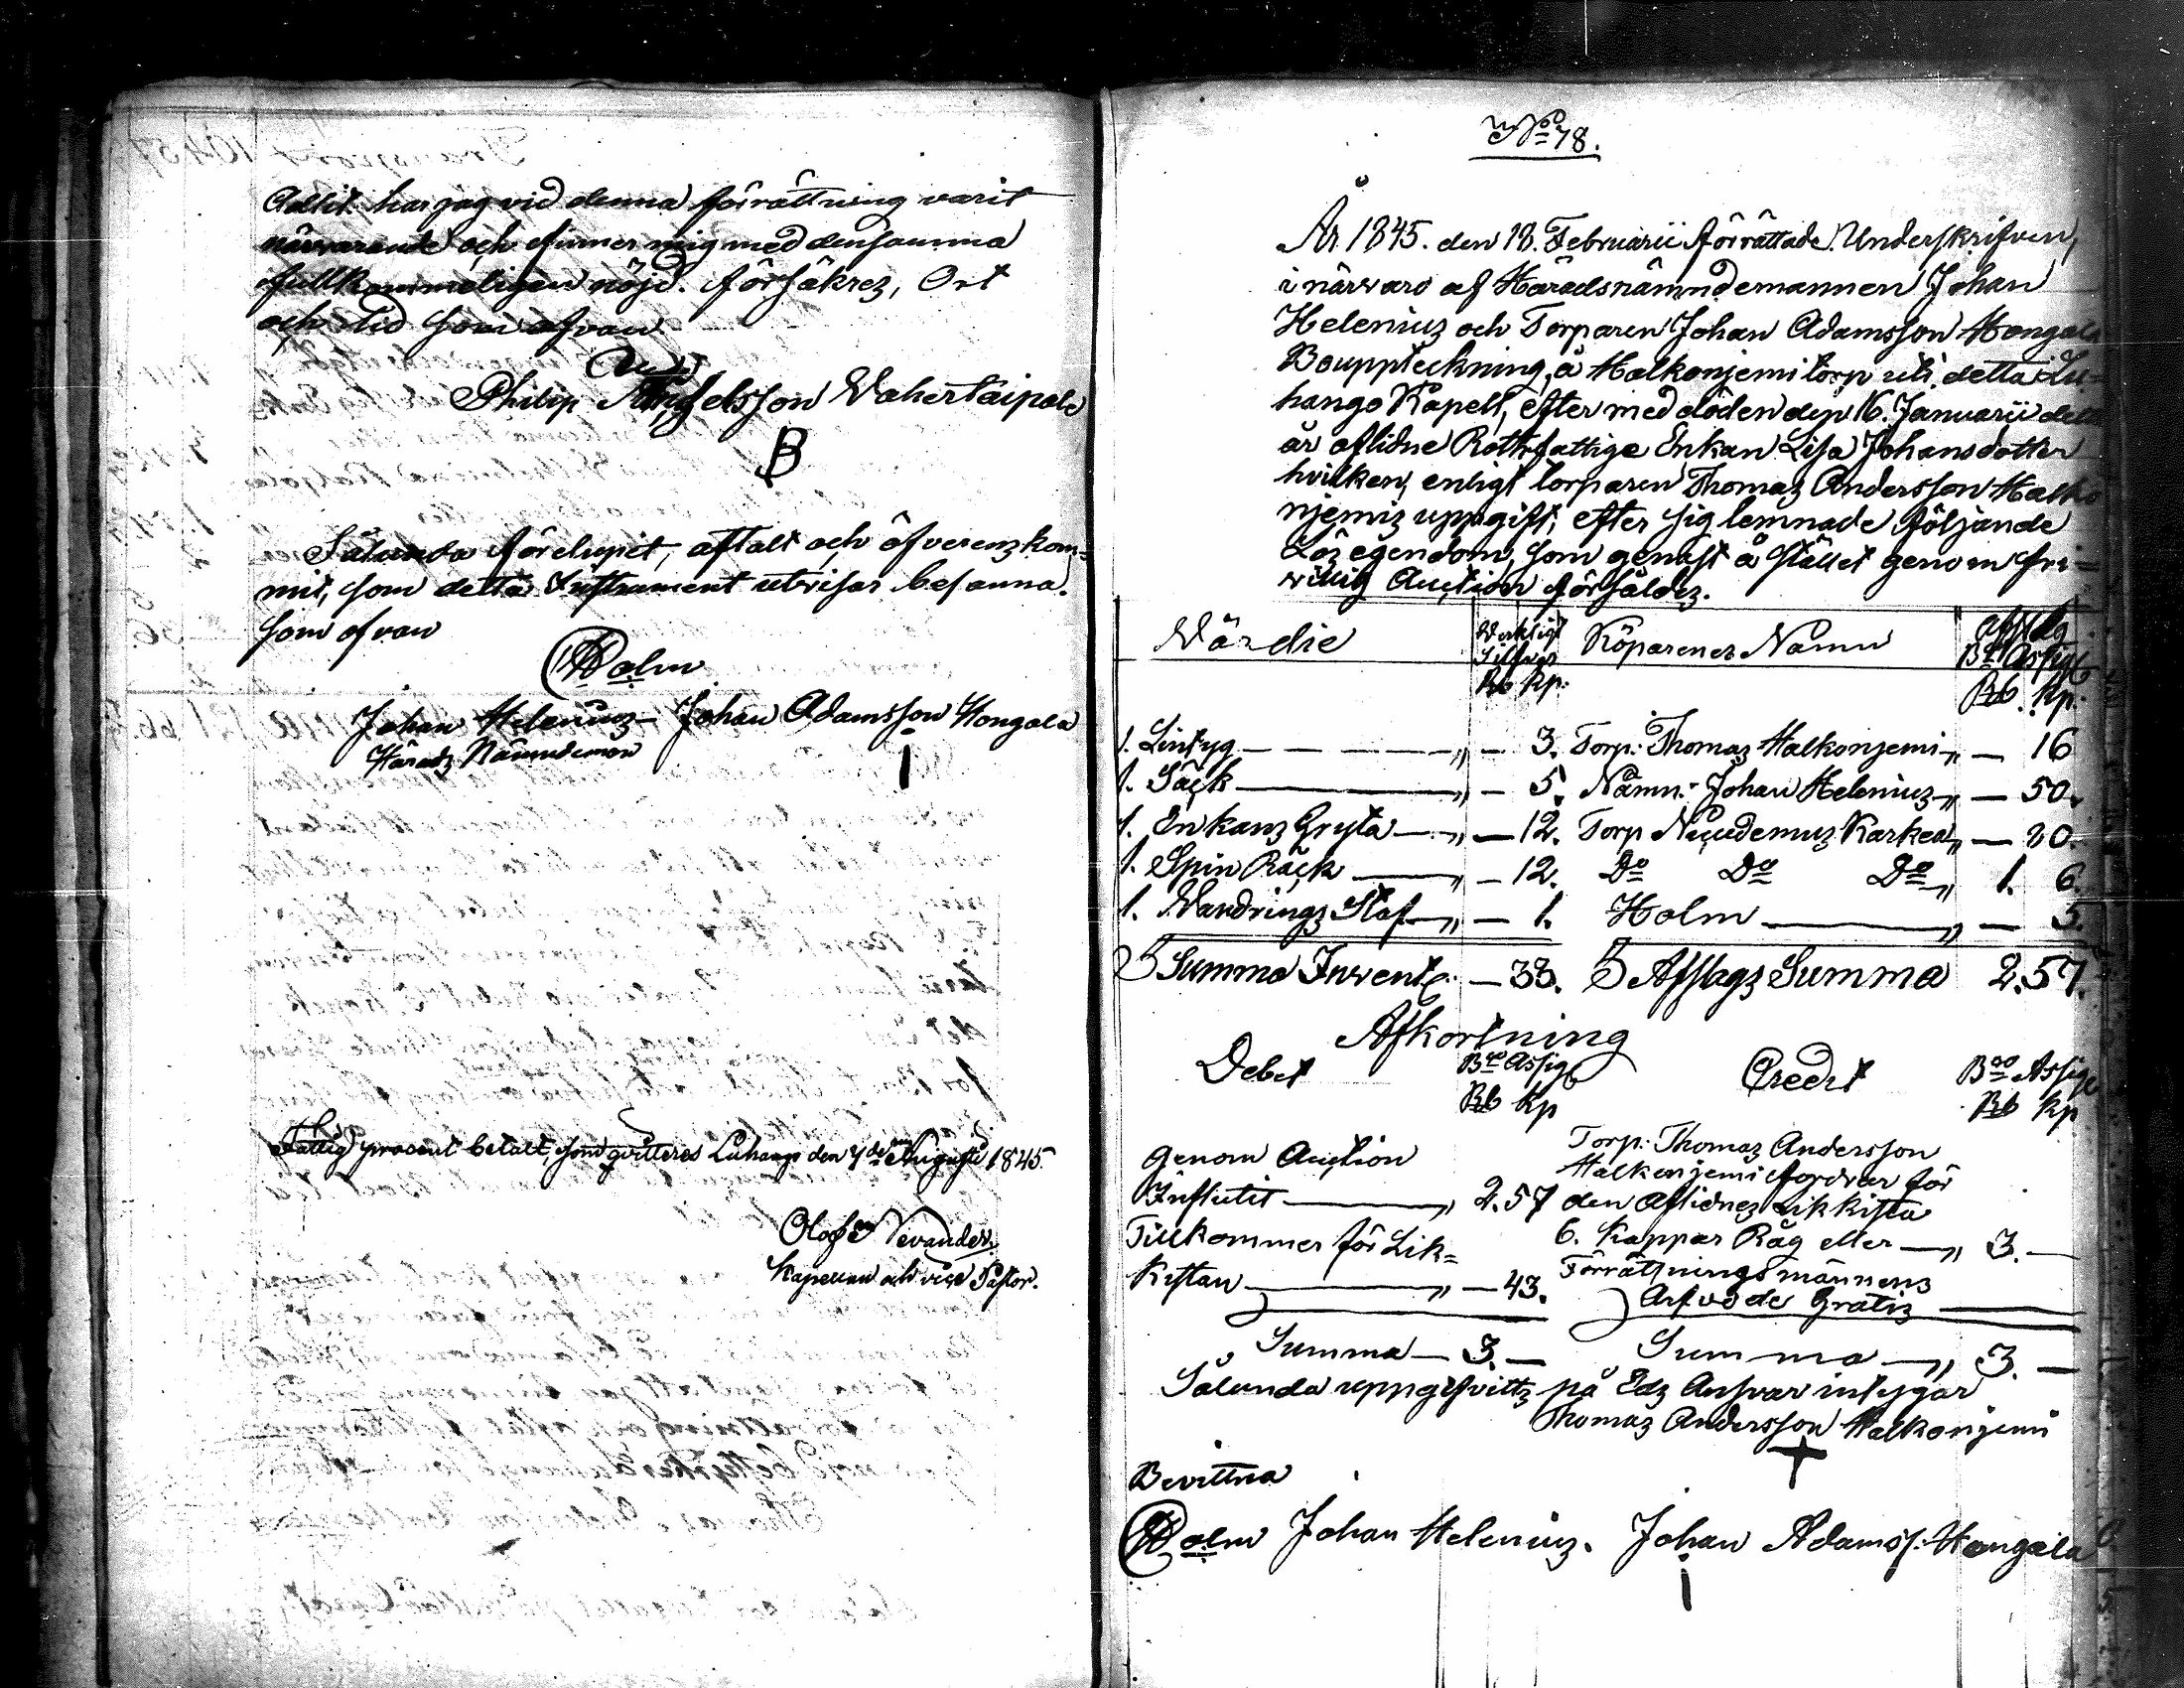 Attit har jag vid denna förrättning varit
närvarande och finner mig med densamma
fullkommeligen nöjd. försäkrez, Ort
och tid som ofvan
Philip Wahertaipale
B
Sålunda förelupit, aftalt och öfverenzkom=
mit, som detta Instrument utvisar besanna.
som ofvan
Holm
Johan Heleniuz Johan Adamsson Hongala
Häradz Nämndeman
Fattig procent betalt, som qvitteras Luhango den 7de Augusti 1845.
Olof Nevander.
Kapellan och vice Pastor.
No 78.
År 1845. den 18. Februarii förrättade Underskrifven,
i närvaro af Häradsnämndemannen Johan
Heleniuz och Torparen Johan Adamsson Hongala
Bouppteckning, å Halkonjemi torp uti detta Lu=
hango Kapell, efter med döden den 16. Januarii detta
år aflidne Rothfattige Enkan Lisa Johansdotter
hvilken, enligt torparen Thomaz Andersson Halko
njemiz uppgift, efter sig lemnade följande
Löz egendom, som genast å stället genom fri=
villig Auction försåldez.
Värdie Verkligt Silfver Köparenez Namn Afslag Bco Assig
Rb Kp: Rb. Kp:
1. Lintyg — „ — 3. Torp: Thomaz Halkonjemi „ — 16
1. Säck — „ — 5. Nämn: Johan Heleniuz „ — 50.
1. Enkanz Gryta — „ — 12. Torp Karkea „ — 80.
1. Spin Råck — „ — 12. Do Do Do „ 1. 6.
1. Vandringz Staf — „ — 1. Holm — „ — 5.
5 Summa Invent: — 33. 5 Afslagz Summa 2.57.
Afkortning
Debet Bco Assig Credit Bco Assig
Rb Kp Rb Kp
Genom Auction
Influtit — „ 2.57
Tillkommer för Lik=
Kistan — „ — 43.
Torp: Thomaz Andersson
Halkonjemi fordrar för
den Aflidnez Likkista
6. Kappar Råg eller — „ 3. —
Förrättningsmännens
Arfvode Gratiz —
Summa — 3. — Summa — „ 3. —
Sålunda uppgifvittz på Edz Ansvar intygar
Thomaz Andersson Halkonjemi
+
Bevittna
Holm Johan Heleniuz. Johan Adamss: Hongala